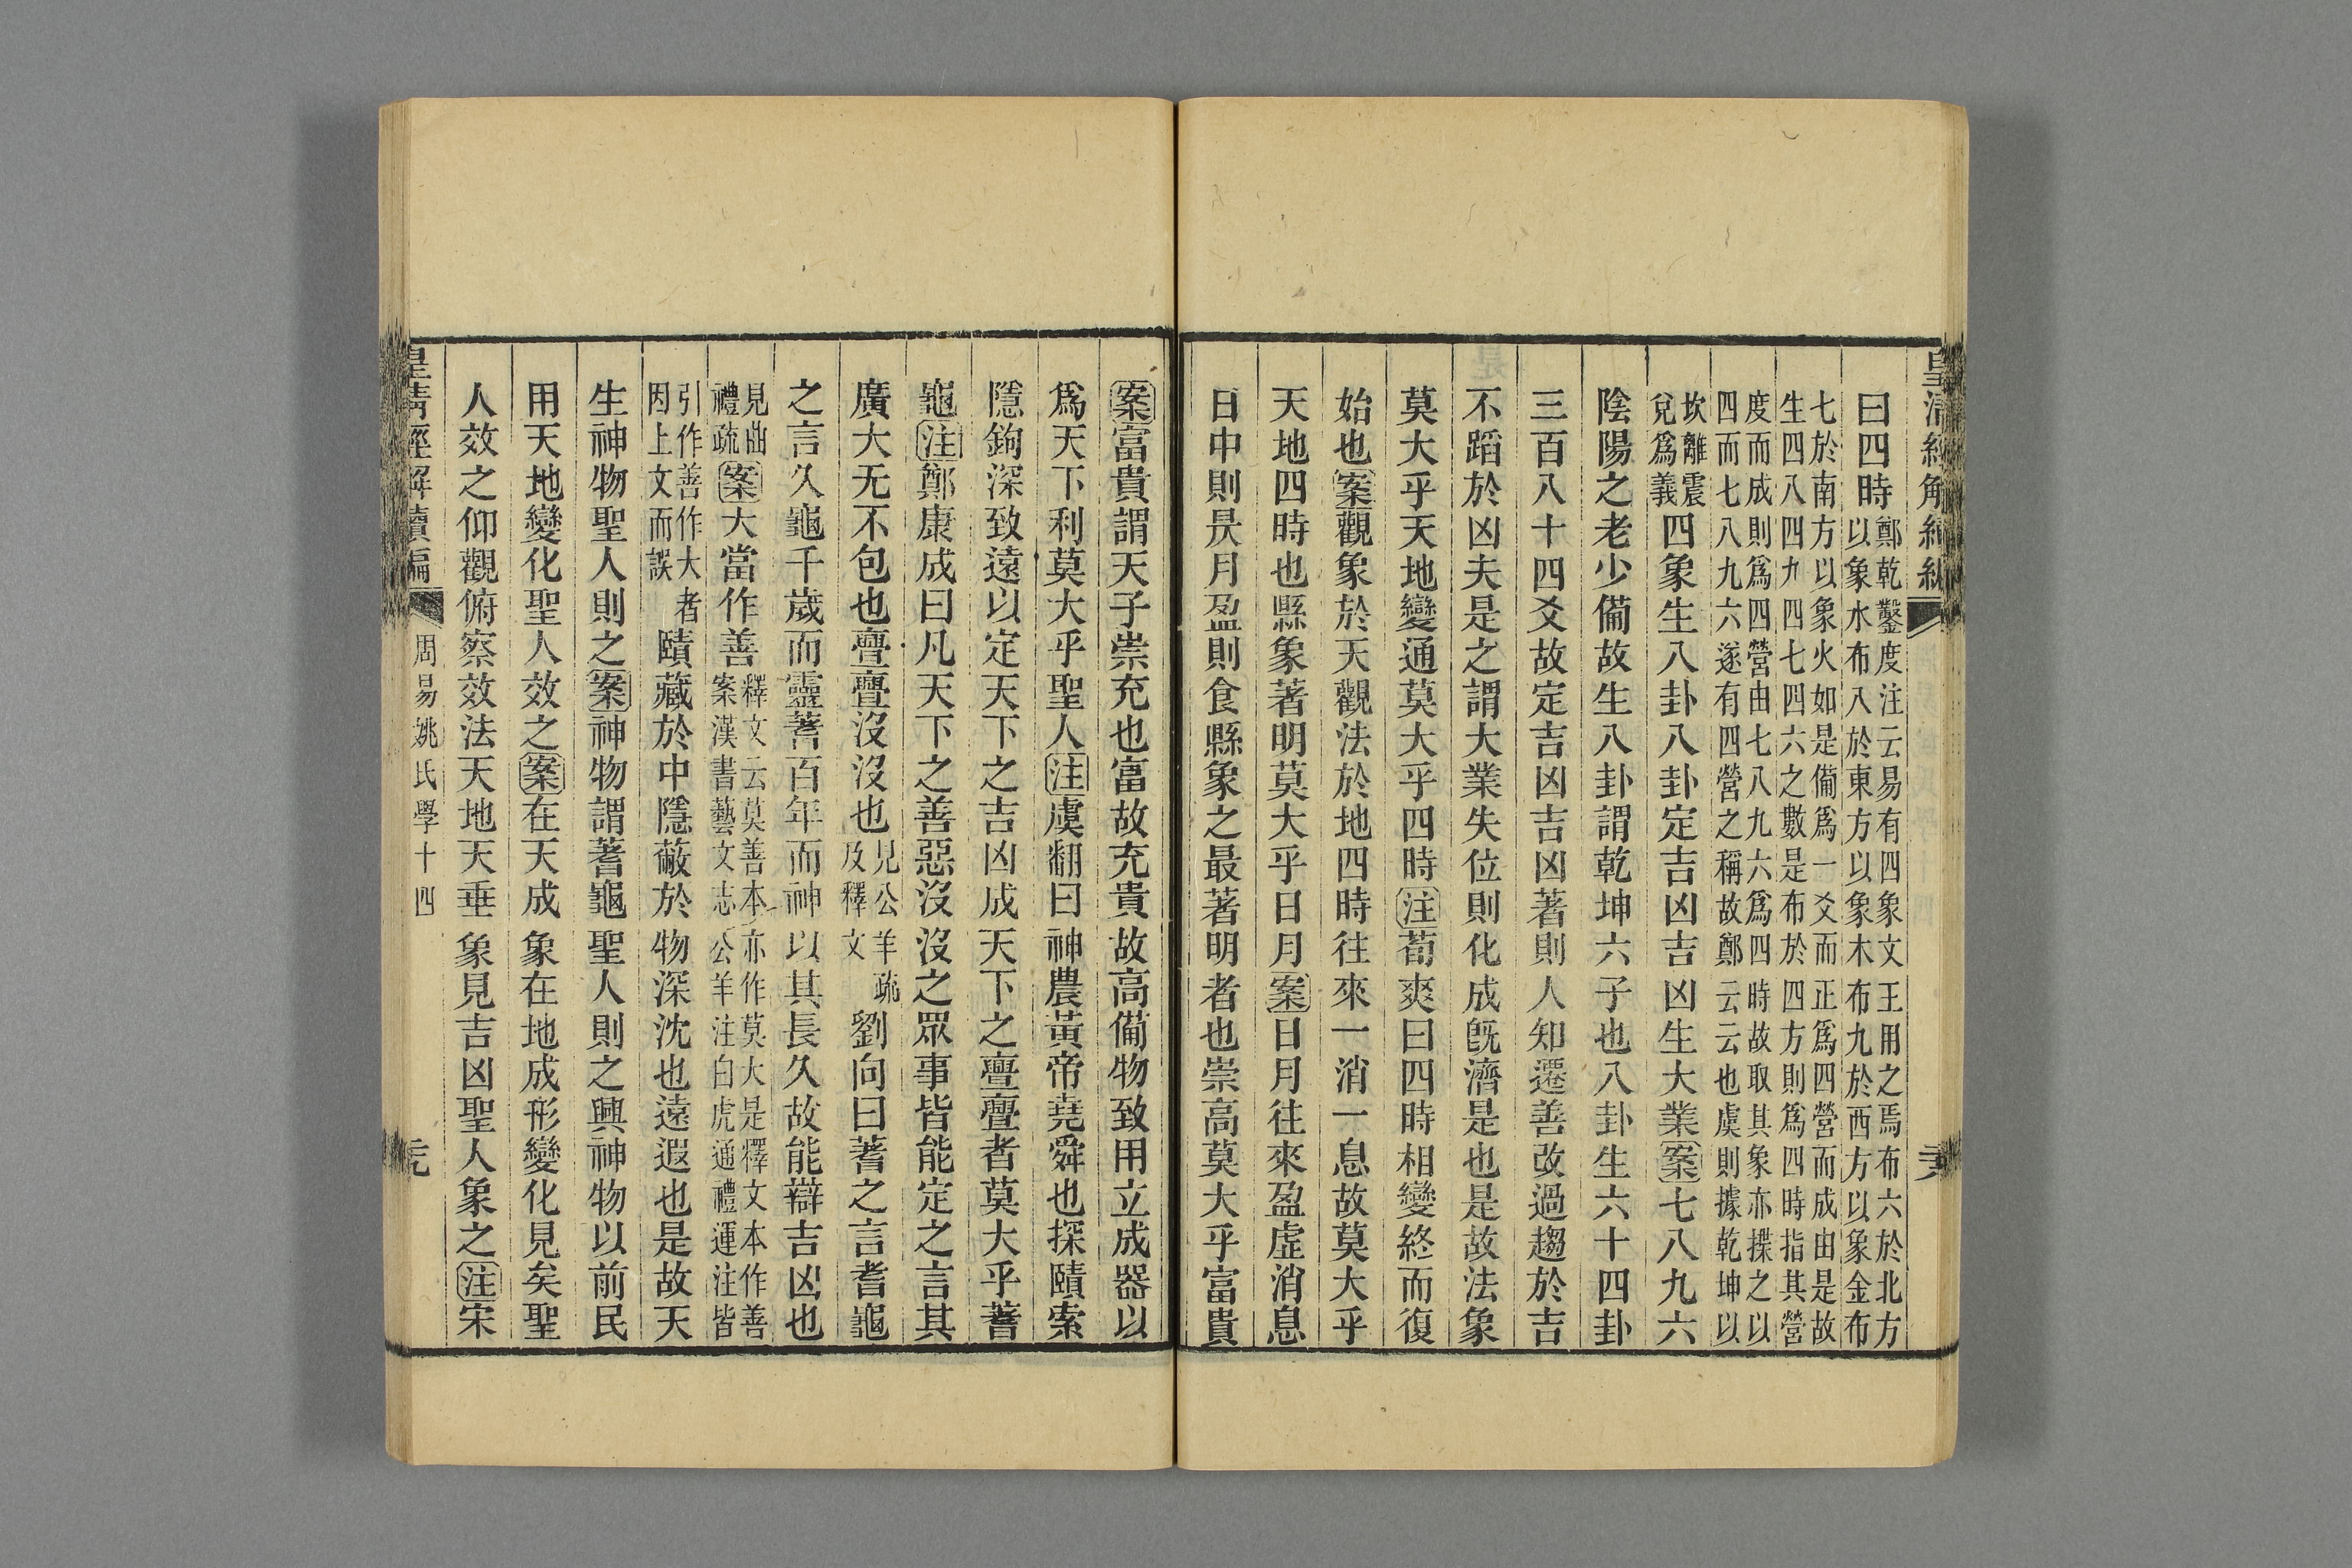 皇清經解續編
曰四時鄭乾鑿度注云易有四象文王用之焉布六於北方以象水布八於東方以象木布九於西方以象金布
七於南方以象火如是備爲一爻而正爲四營而成由是故生四八四九四七四六之數是布於四方則爲四時指其營
度而成則爲四營由七八九六爲四時故取其象亦揲之以四而七八九六遂有四營之稱故鄭云云也虞則據乾坤以
坎離震兌爲義四象生八卦八卦定吉凶吉凶生大業案七八九六
陰陽之老少備故生八卦謂乾坤六子也八卦生六十四卦
三百八十四爻故定吉凶吉凶著則人知遷善改過趨於吉
不蹈於凶夫是之謂大業失位則化成旣濟是也是故法象
莫大乎天地變通莫大乎四時注荀爽曰四時相變終而復
始也案觀象於天觀法於地四時往來一消一息故莫大乎
天地四時也縣象著明莫大乎日月案日月往來盈虛消息
日中則昃月盈則食縣象之最著明者也崇高莫大乎富貴
案富貴謂天子崇充也富故充貴故高備物致用立成器以
爲天下利莫大乎聖人注虞翻曰神農黃帝堯舜也探賾索
隱鉤深致遠以定天下之吉凶成天下之亹亹者莫大乎蓍
龜注鄭康成曰凡天下之善惡沒沒之眾事皆能定之言其
廣大无不包也亹亹沒沒也見公羊疏及釋文劉向曰蓍之言耆龜
之言久龜千歲而靈蓍百年而神以其長久故能辯吉凶也
見曲禮疏案大當作善釋文云莫善本亦作莫大是釋文本作善案漢書藝文志公羊注白虎通禮運注皆
引作善作大者因上文而誤賾藏於中隱蔽於物深沈也遠遐也是故天
生神物聖人則之案神物謂蓍龜聖人則之興神物以前民
用天地變化聖人效之案在天成象在地成形變化見矣聖
人效之仰觀俯察效法天地天垂象見吉凶聖人象之注宋
皇清經解續編
周易姚氏學十四